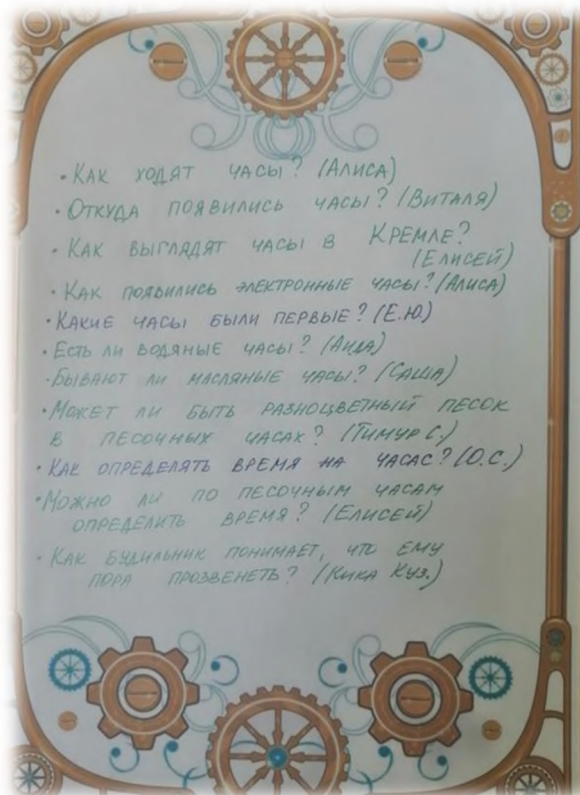 · Как ходят часы? (Алиса)
· Откуда появились часы? (Виталя)
· Как выглядят часы в Кремле?
(Елисей)
· Как появились электронные часы? (Алиса)
· Какие часы были первые? (Е.Ю.)
· Есть ли водяные часы? (Аида)
· Бывают ли масляные часы? (Саша)
· Может ли быть разноцветный песок
в песочных часах? (Тимур С.)
· Как определять время на часас? (О.С.)
· Можно ли по песочным часам
определить время? (Елисей)
· Как будильник понимает, что ему
пора прозвенеть? (Кика Куз.)